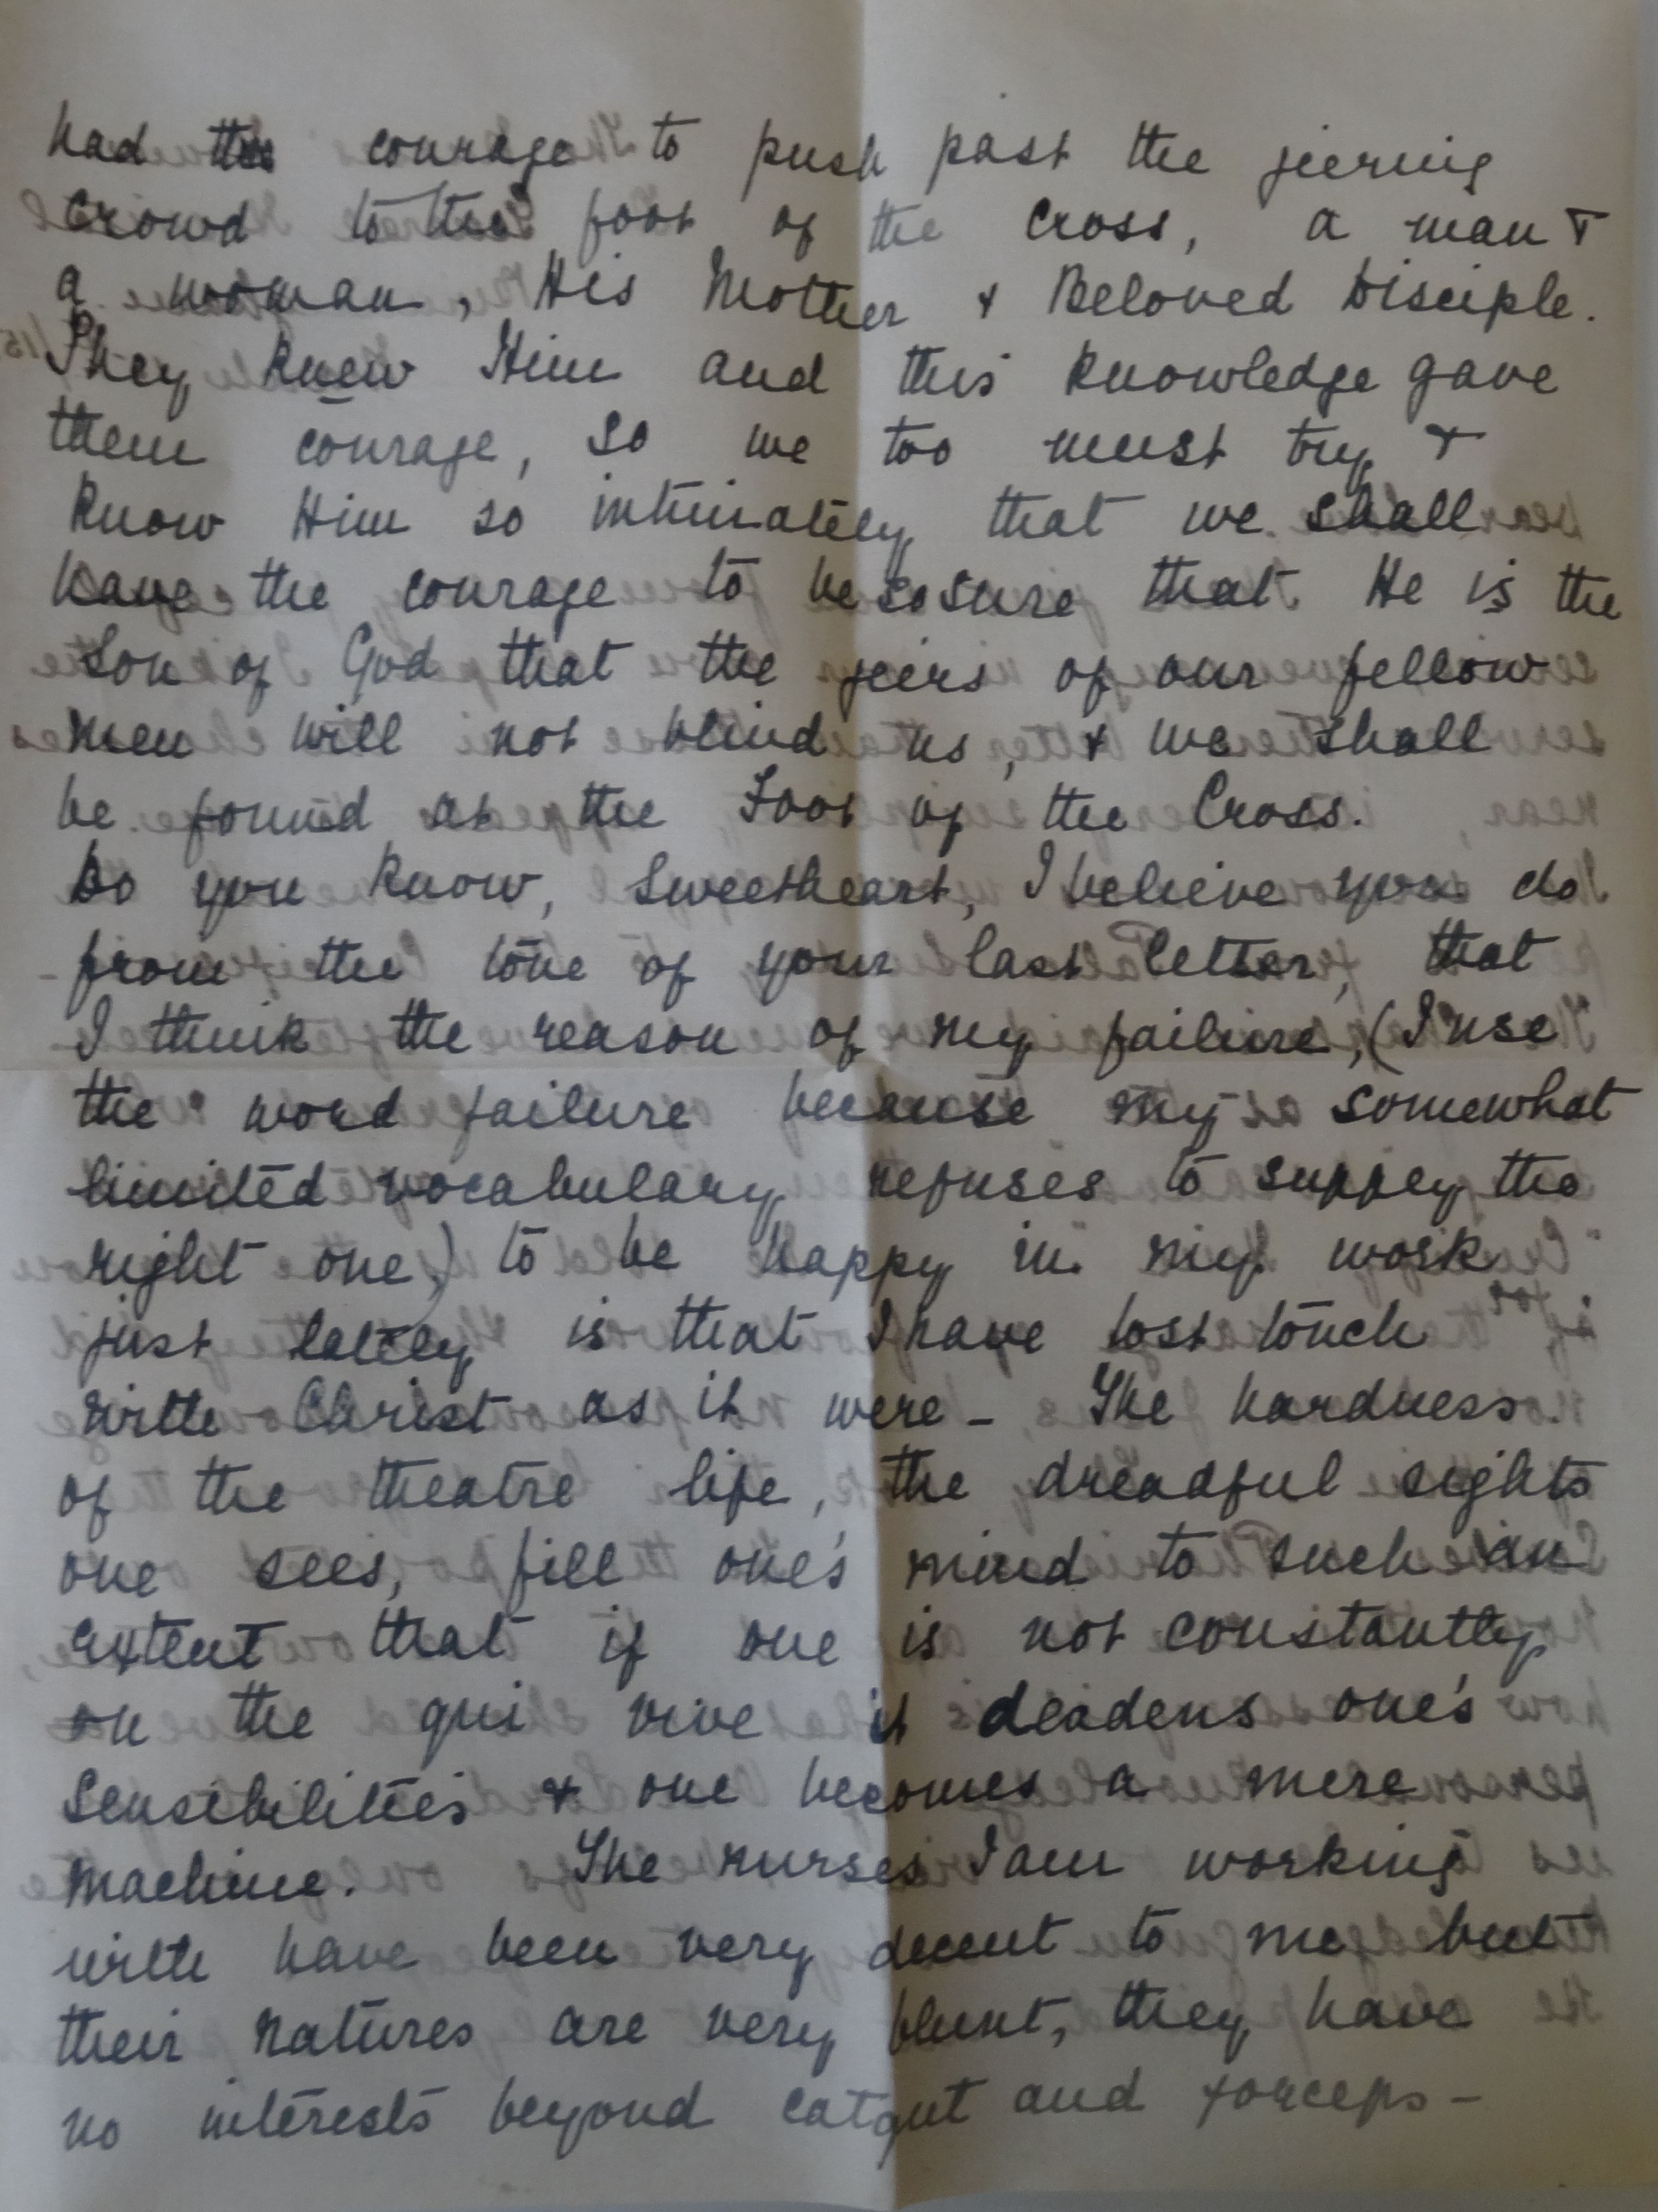 had the courage to push past the jeering
crowd to the foot of the Cross, a man &
a woman, His Mother & Beloved Disciple.
They knew Him and this knowledge gave
them courage, so we too must try &
know Him so intimately that we shall
have the courage to be so sure that He is the
Son of God that the jeers of our fellow
men will not blind us, & we shall
be found at the Foot of the Cross.
Do you know, Sweetheart, I believe you do
from the tone of your last letter, that
I think the reason of my failure, (I use
the word failure because my somewhat
limited vocabulary refuses to supply the
right one,) to be happy in my work
just lately is that I have lost touch
with Christ as it were - The hardness
of the theatre life, the dreadful sights
one sees, fill one's mind to such an
extent that if one is not constantly
on the qui vive it deadens one's
sensibilities & one becomes a mere
machine. The nurses I am working
with have been very decent to me but
their natures are very blunt, they have
no interests beyond catgut and forceps -